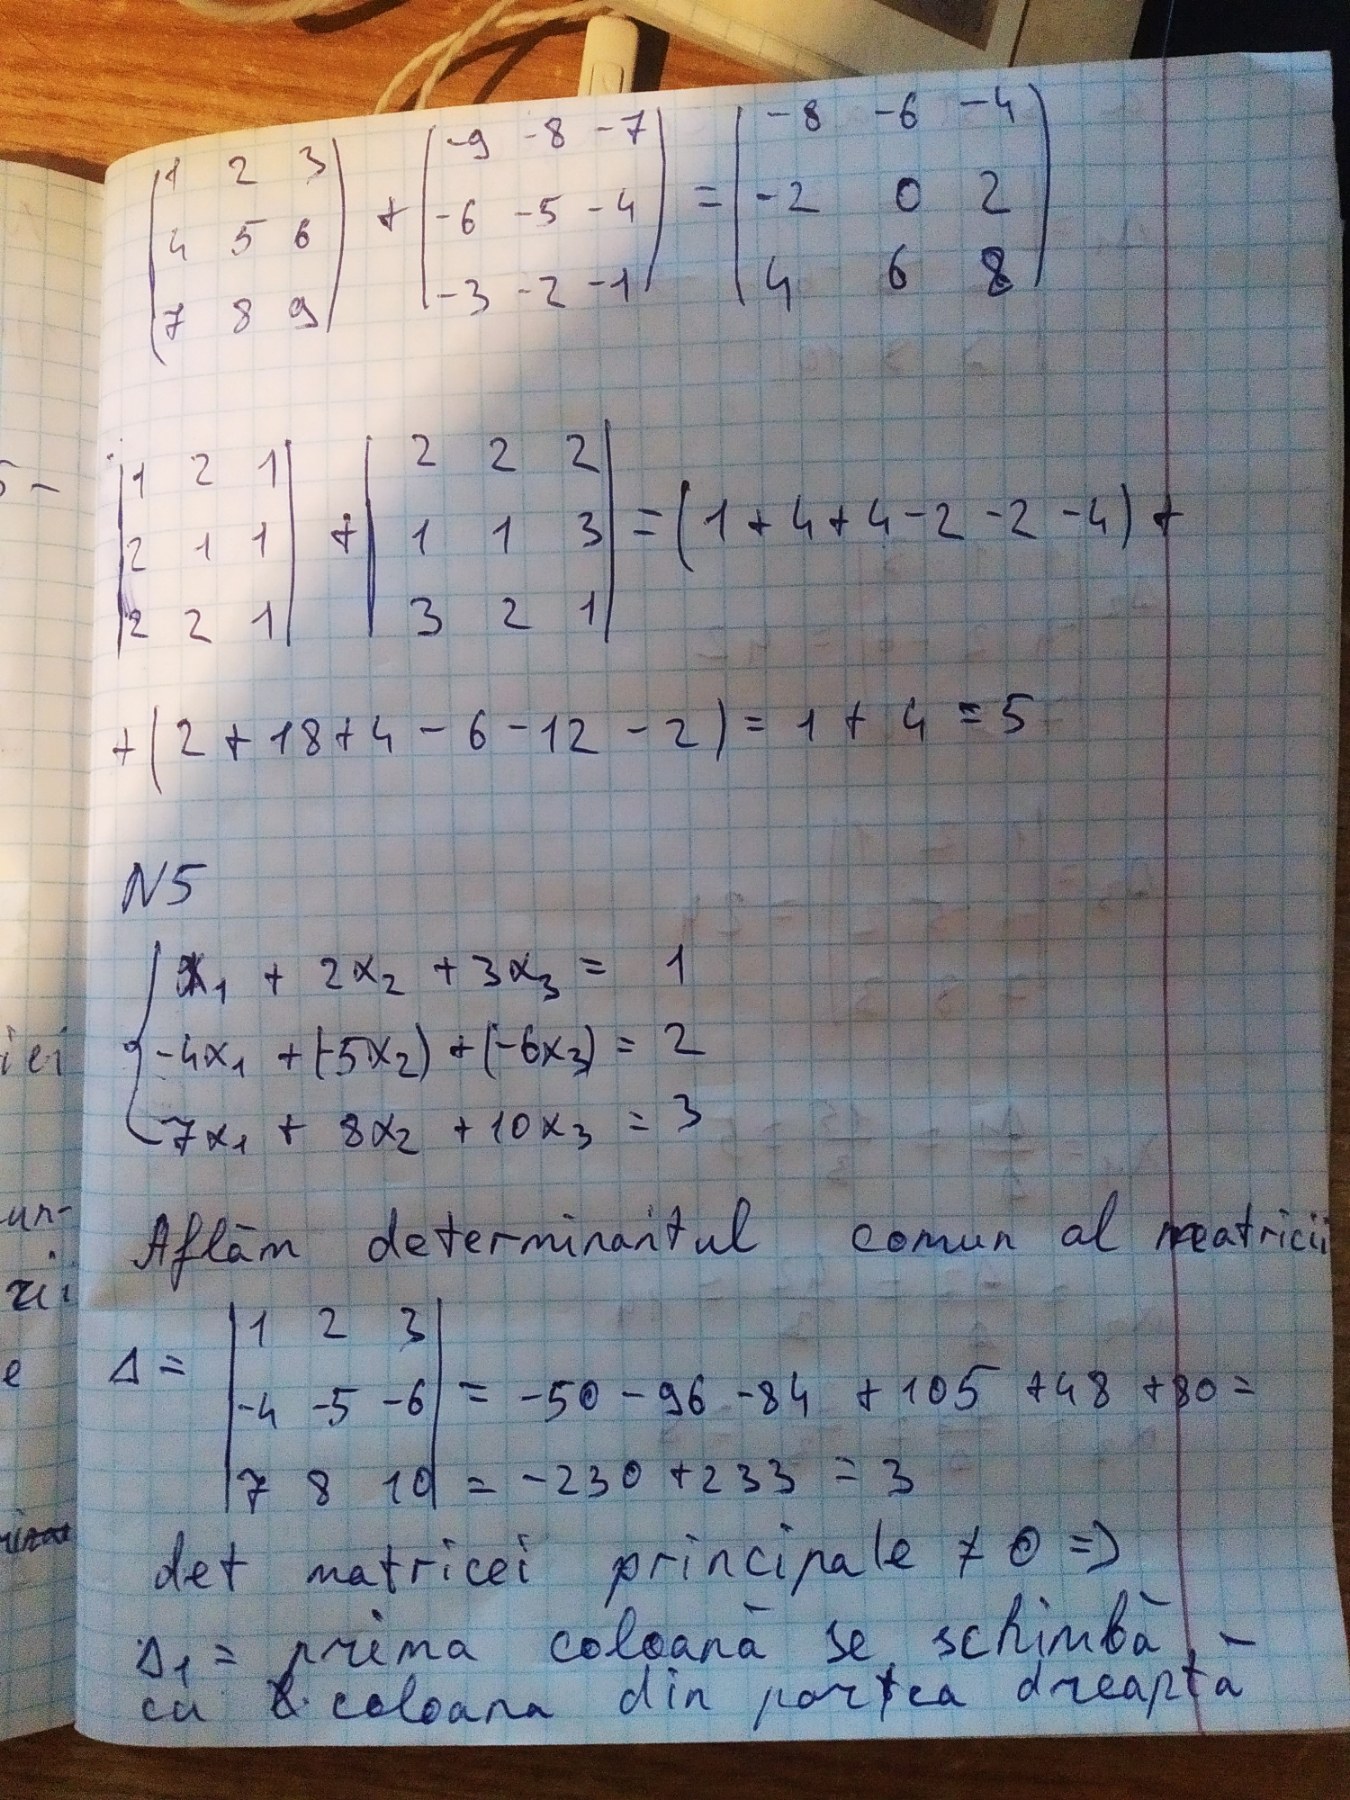 (1 2 3) + (-9 -8 -7) = (-8 -6 -4)
(4 5 6) (-6 -5 -4) (-2 0 2)
(7 8 9) (-3 -2 -1) (4 6 8)
|1 2 1| + |2 2 2|
|2 1 1| |1 1 3| = (1+4+4-2-2-4)+
|2 2 1| |3 2 1|
+(2+18+4-6-12-2)=1+4=5
N5
x₁ + 2x₂ + 3x₃ = 1
-4x₁ + (-5x₂) + (-6x₃) = 2
7x₁ + 8x₂ + 10x₃ = 3
Aflăm determinantul comun al matricii
|1 2 3|
Δ= |-4 -5 -6| = -50-96-84+105+48+80=
|7 8 10| = -230+233 = 3
det matricei principale ≠ 0 =>
Δ₁ = prima coloană se schimbă -
cu coloana din partea dreaptă